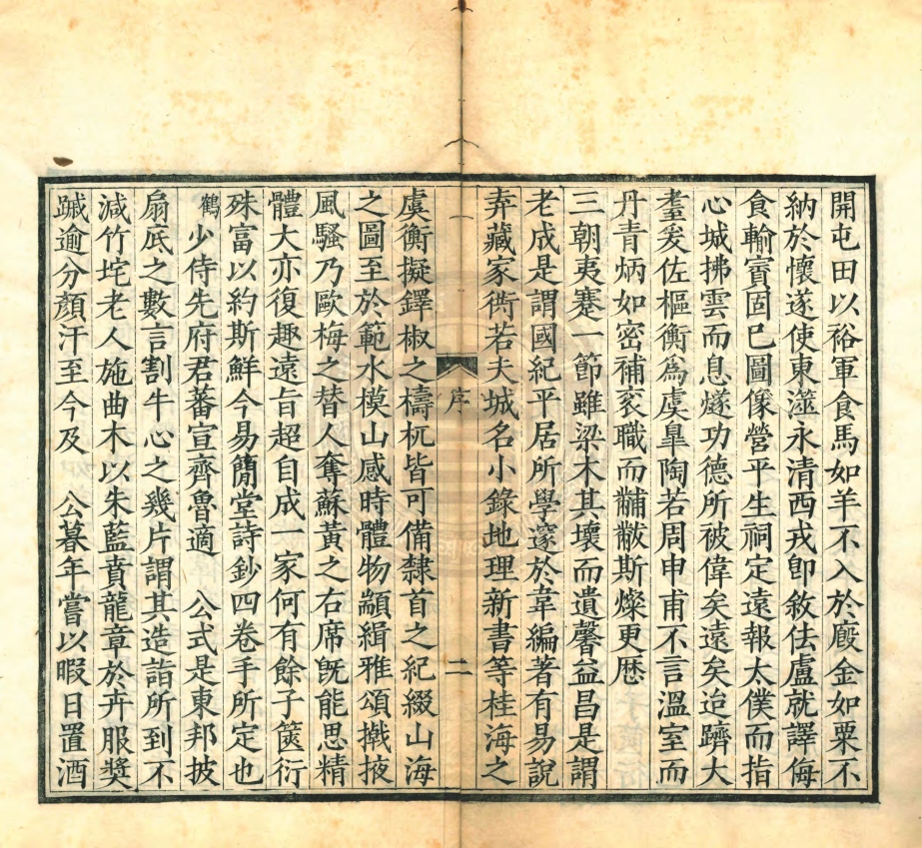 開屯田以裕軍食馬如羊不入於廄金如粟不
納於懷遂使東澨永清西戎卽敘佉盧就譯侮
食輸賨固已圖像營平生祠定遠報太僕而指
心城拂雲而息燧功德所被偉矣遠矣迨躋大
耋爰佐樞衡爲虞臯陶若周申甫不言溫室而
丹青炳如密補袞職而黼黻斯燦更歷
三朝夷蹇一節雖梁木其壞而遺馨益昌是謂
老成是謂國紀平居所學邃於韋編著有易說
弆藏家衖若夫城名小錄地理新書等桂海之
序
二
虞衡擬鐸椒之檮杌皆可備隸首之紀綴山海
之圖至於範水模山感時體物顓緝雅頌撠掖
風騷乃歐梅之替人奪蘇黃之右席旣能思精
體大亦復趣遠旨超自成一家何有餘子篋衍
殊富以約斯鮮今易簡堂詩鈔四卷手所定也
鶴少侍先府君蕃宣齊魯適　公式是東邦披
扇底之數言割牛心之幾片謂其造詣所到不
減竹垞老人施曲木以朱藍賁龍章於卉服獎
踰分顏汗至今及　公暮年嘗以暇日置酒